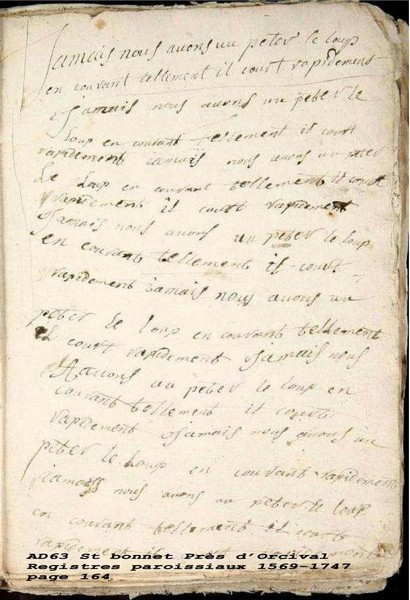 Jamais nous avons vu peter le loup
en courant tellement il court rapidement
Jamais nous avons vu peter le
loup en courant tellement il court
rapidement jamais nous avons vu peter
le loup en courant tellement il court
rapidement il court rapidement
Jamais nous avons vu peter le loup
en courant tellement il court
rapidement jamais nous avons vu
peter le loup en courant tellement
il court rapidement Jamais nous
avons vu peter le loup en
courant tellement il court
rapidement Jamais nous avons vu
peter le loup en courant rapidement
jamais nous avons vu peter le loup
en courant tellement il court
rapidement il
AD63 St bonnet Près d'Orcival
Registres paroissiaux 1569-1747
page 164